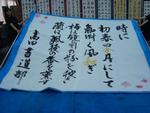 時に
初春の令月にして
気淑く風和ぎ
梅は鏡前の粉を披き
蘭は珮後の香を薫す
高田書道部